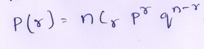 P(r) = nCr p^r q^n-r